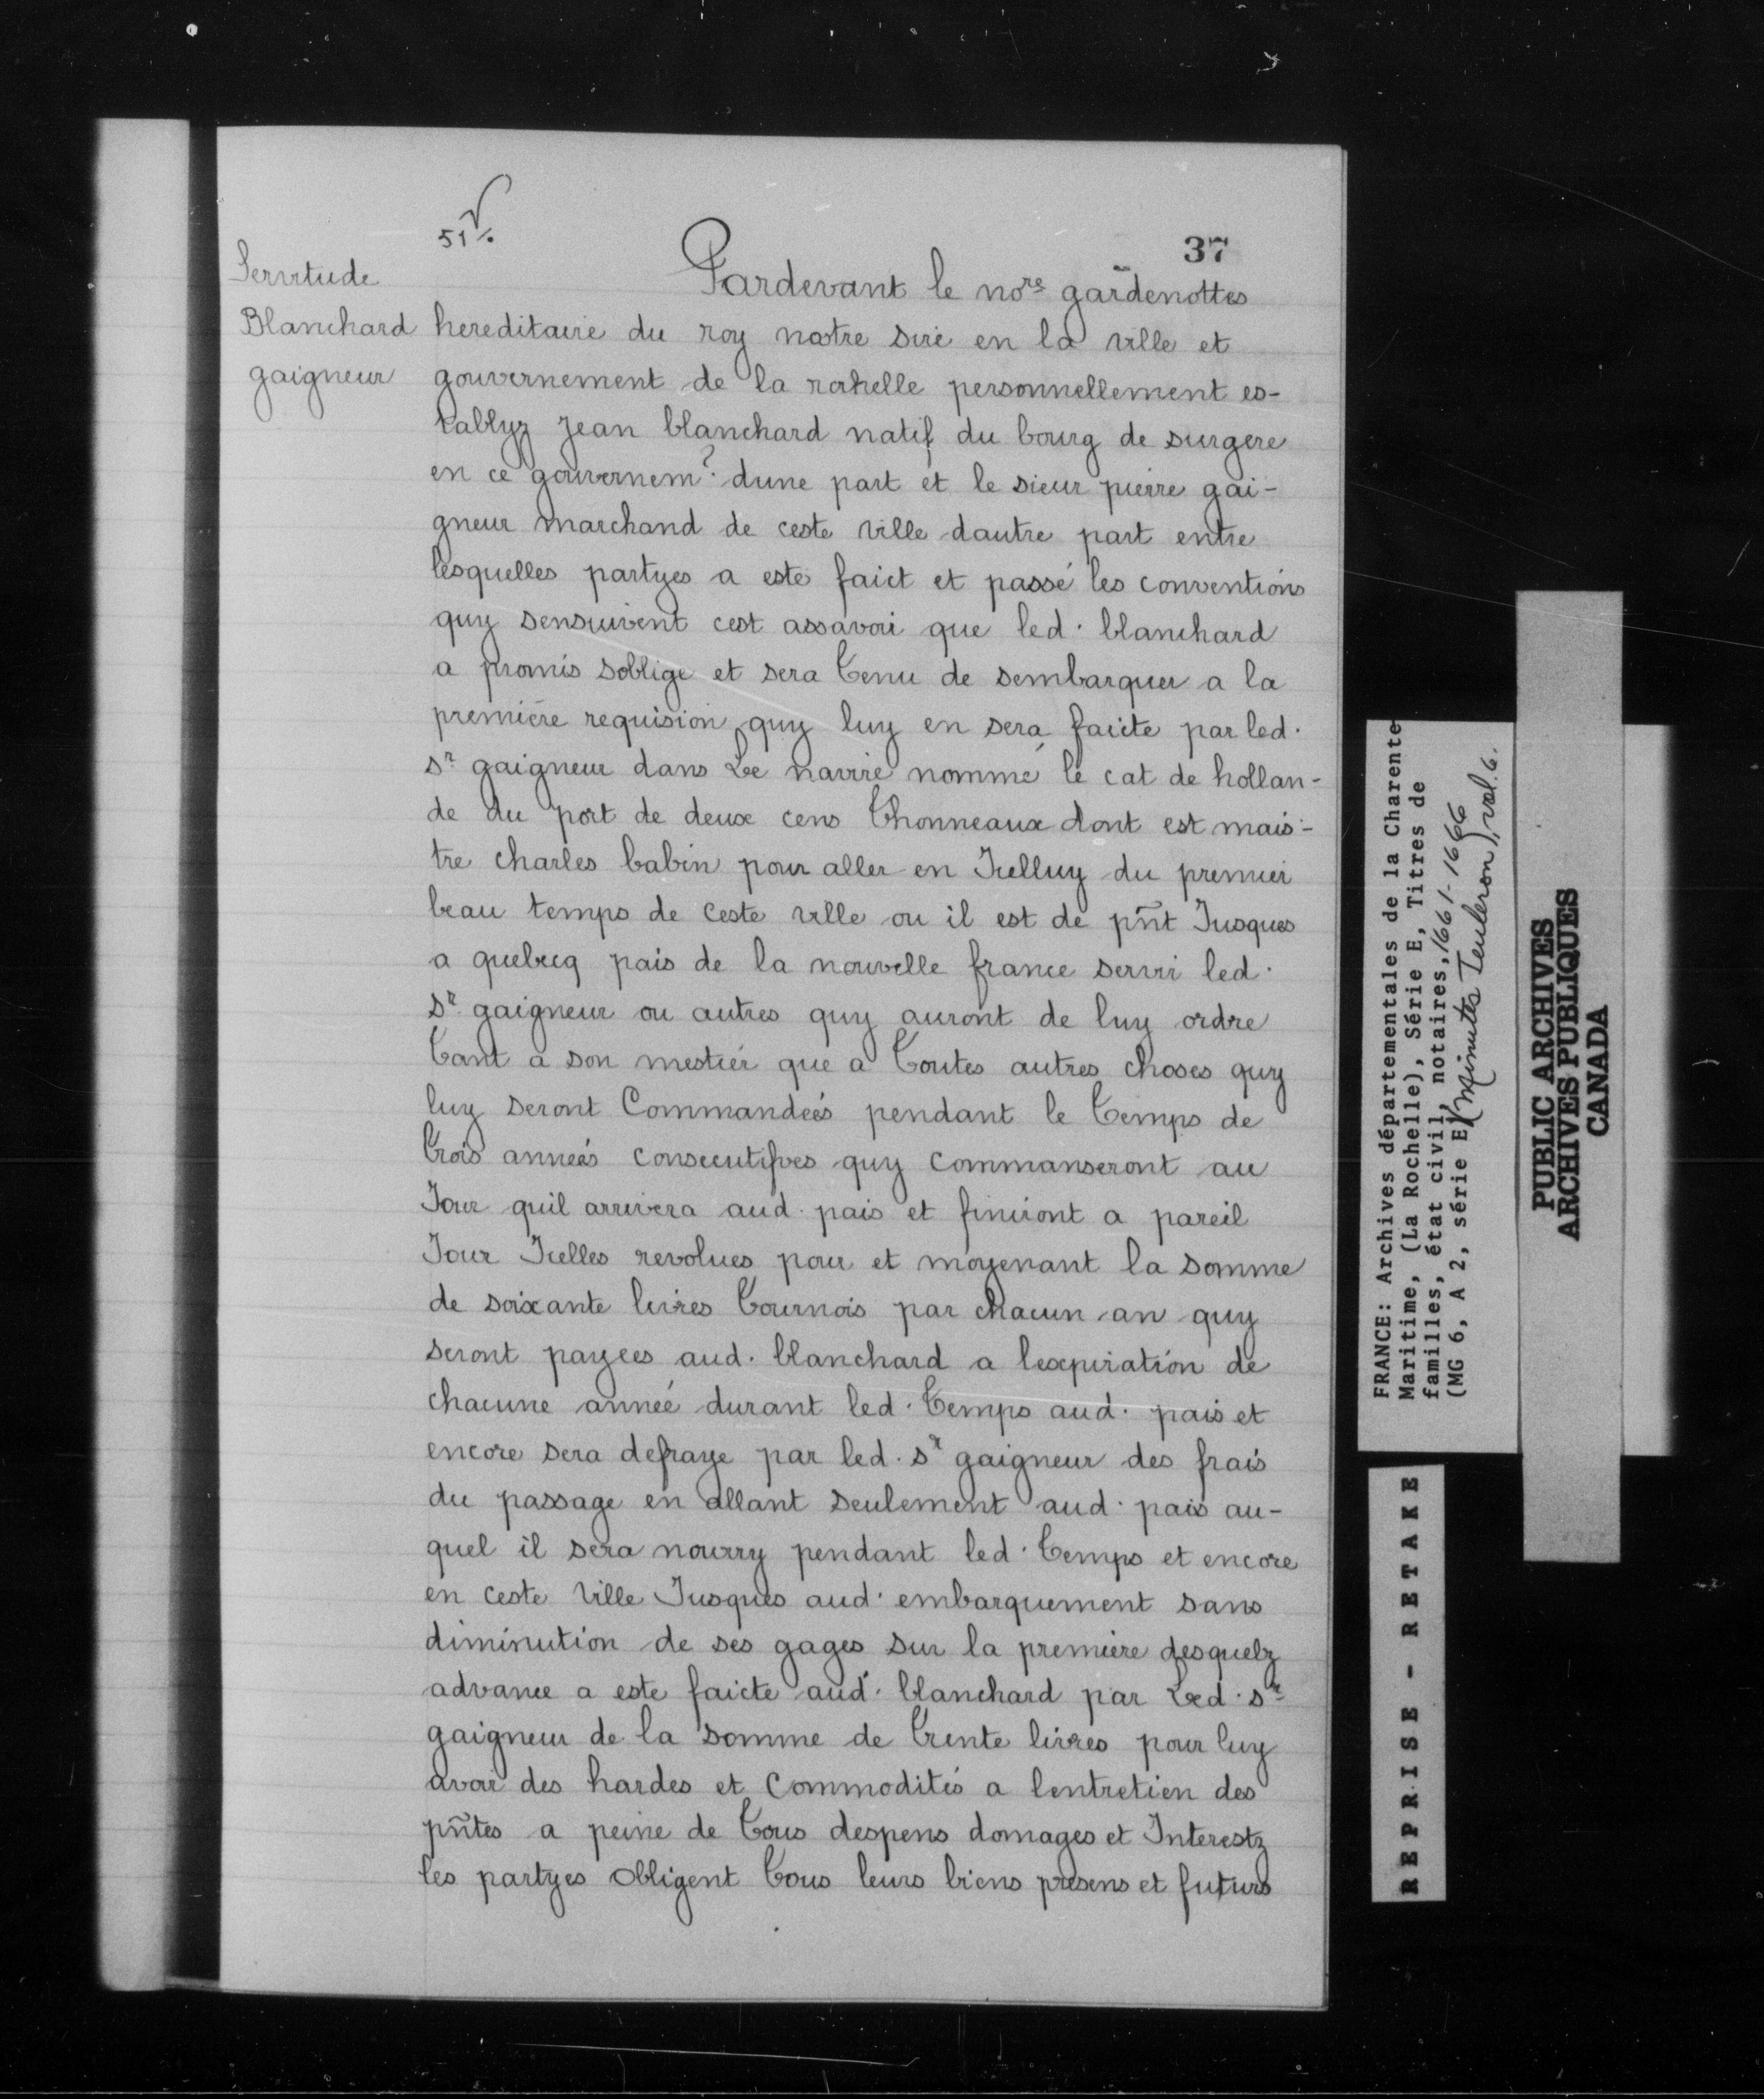 51 v.
37
Servitude
Blanchard
gaigneur
Pardevant le nore gardenottes
hereditaire du roy nostre sire en la ville et
gouvernement de la rochelle personnellement es-
tablyz Jean blanchard natif du bourg de surgere
en ce gouvernemt. dune part et le sieur pierre gai-
gneur marchand de ceste ville dautre part entre
lesquelles partyes a este faict et passé les conventions
quy sensuivent cest assavoir que led. blanchard
a promis soblige et sera tenu de sembarquer a la
première requision quy luy en sera faicte par led.
sr gaigneur dans Le navire nommé le cat de hollan-
de du port de deux cens thonneaux dont est mais-
tre charles babin pour aller en Icelluy du premier
beau temps de ceste ville ou il est de pñt Jusques
a quebecq pais de la nouvelle france servir led.
sr gaigneur ou autres quy auront de luy ordre
tant a son mestier que a toutes autres choses quy
luy seront Commandées pendant le temps de
trois années consecutifves quy commanseront au
Jour quil arrivera aud. pais et finiront a pareil
Jour Icelles revolues pour et moyenant la somme
de soixante livres tournois par chacun an quy
seront payees aud. blanchard a lexpiration de
chacune année durant led. temps aud. pais et
encore sera defraye par led. sr gaigneur des frais
du passage en allant seulement aud. pais au-
quel il sera nourry pendant led. temps et encore
en ceste ville Jusques aud. embarquement sans
diminution de ses gages sur la première desquelz
advance a este faicte aud. blanchard par Led. sr
gaigneur de la somme de trente livres pour luy
avoir des hardes et Commodités a lentretien des
pñtes a peine de tous despens domages et Interestz
les partyes obligent tous leurs biens presens et futurs
FRANCE: Archives départementales de la Charente
Maritime, (La Rochelle), Série E, Titres de
familles, état civil, notaires, 1661-1666
(MG 6, A 2, série E) (Minutes Teuleron), vol. 6.
PUBLIC ARCHIVES
ARCHIVES PUBLIQUES
CANADA
REPRISE - RETAKE